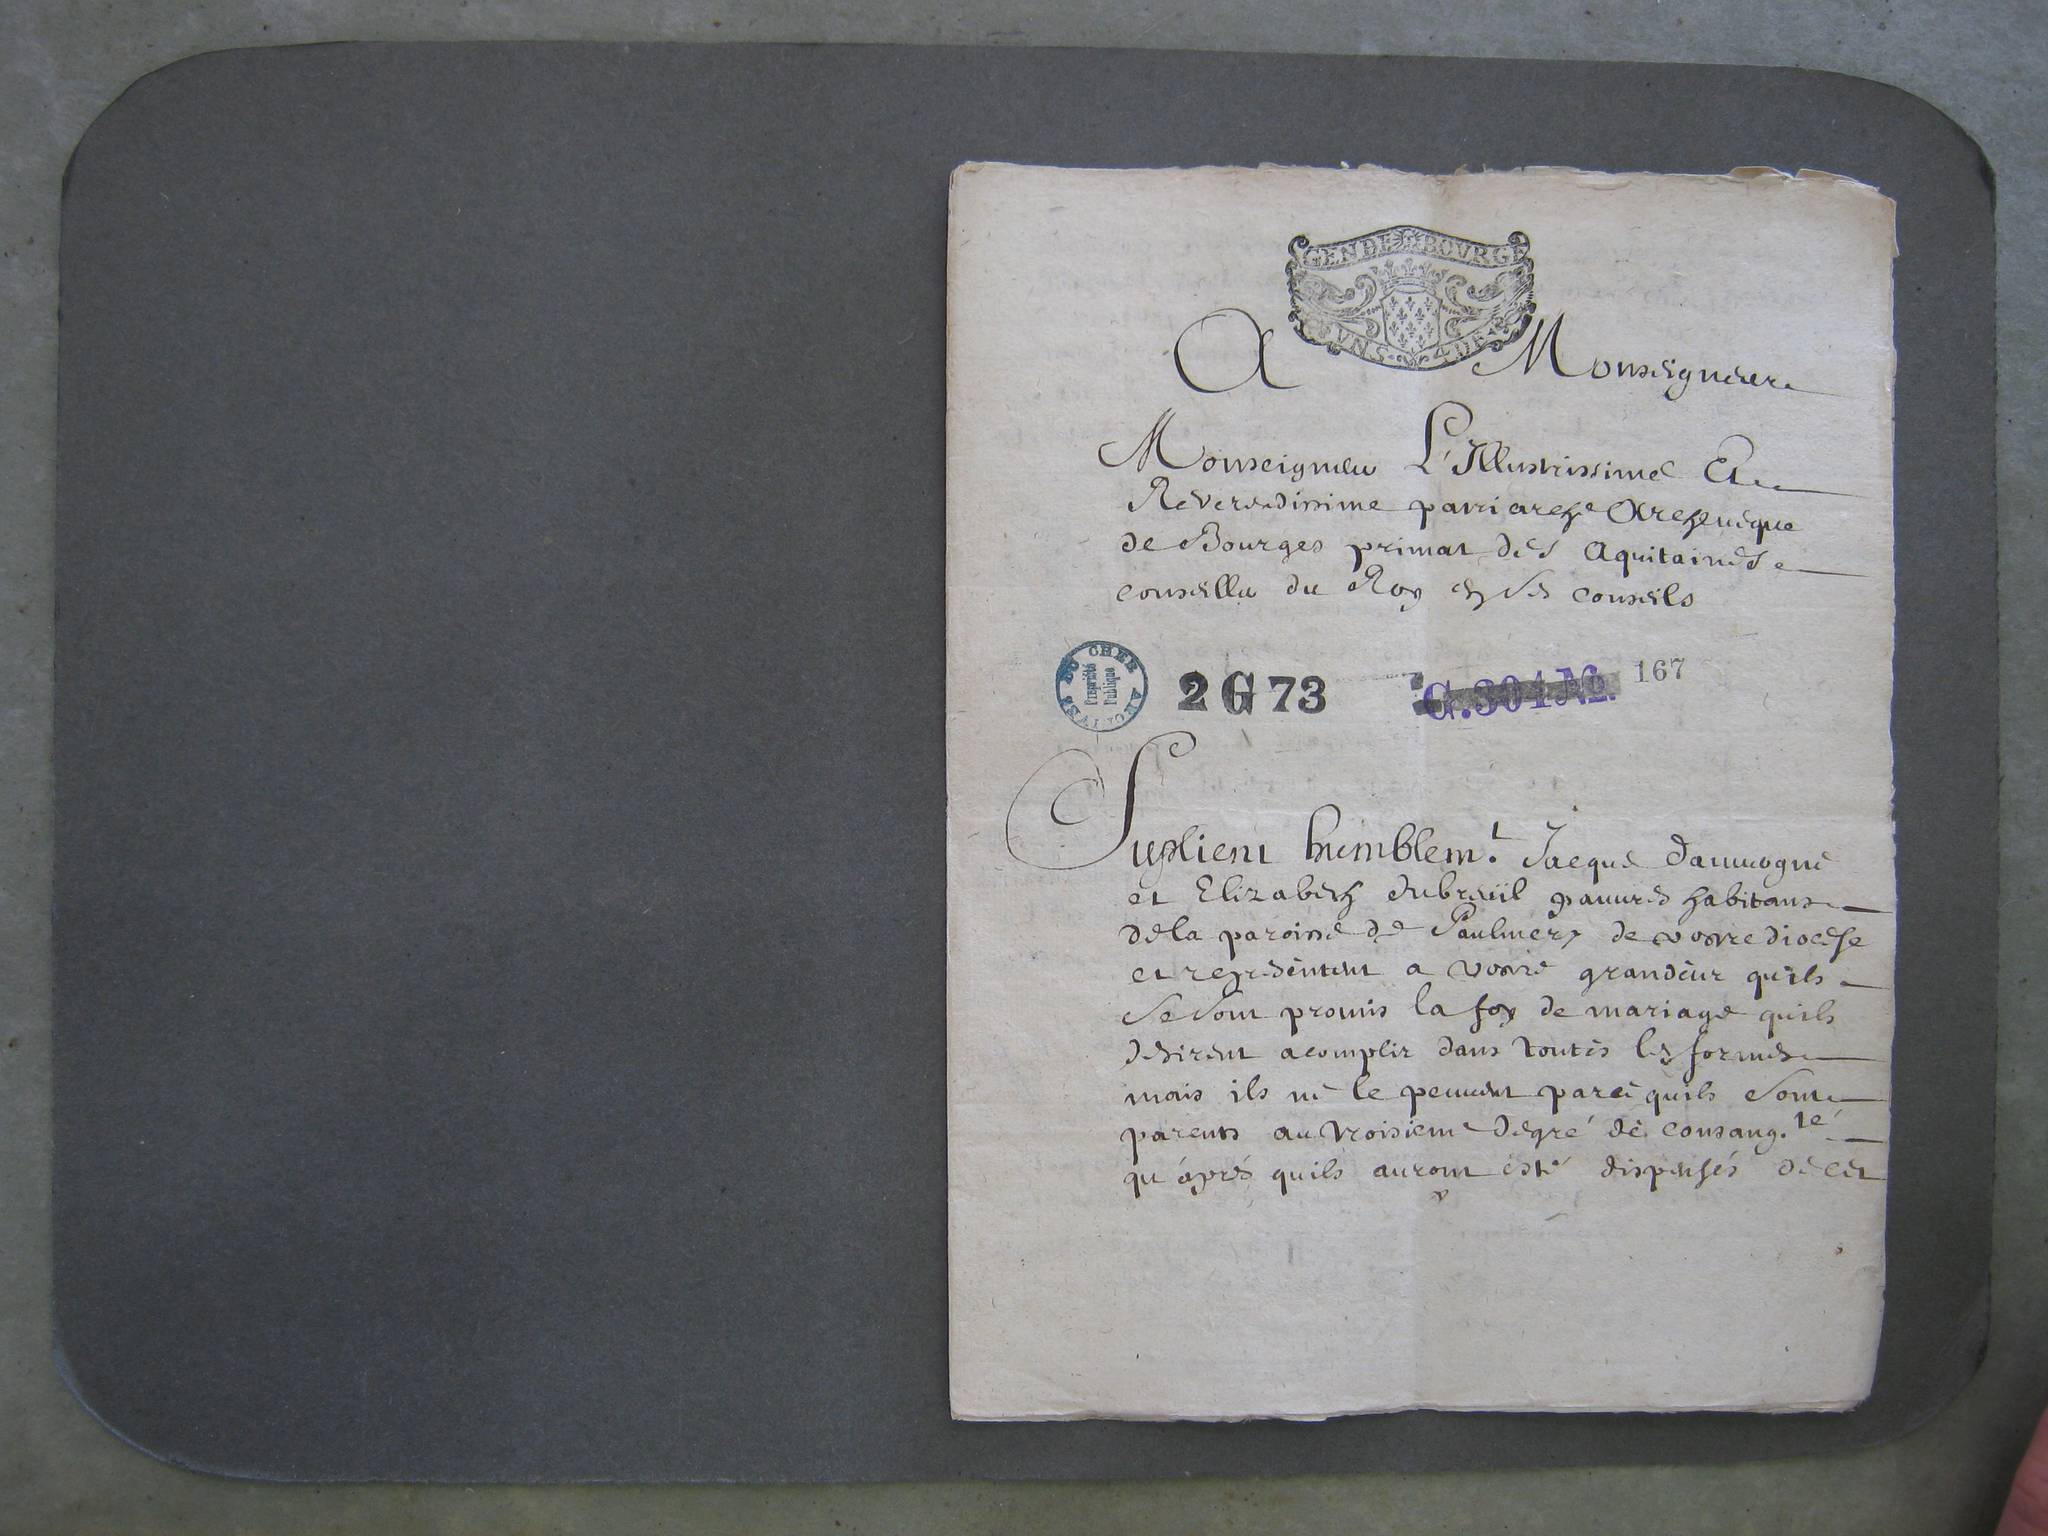 GEN DE BOVRGE
VNS 4 DE
A Monseigneur
Monseigneur L'Illustrissime Et
Reverendissime patriarche Archeuéque
de Bourges primat des Aquitaines
conseiller du Roy en ses conseils
ARCHIVES DU CHER
Propriété
Publique
2 G 73
G.304 No.
167
Suplient humblem.t Jacque dauuogne
et Elizabeth dubreüil pauures habitans
de la paroisse de Paulmery de vostre diocese
et representent a vostre grandeur quils
se sont promis la foy de mariage quils
desirent acomplir dans toutes les formes
mais ils ne le peuuent parce quils sont
parents au troisieme degré de consang.té
qu'áprés quils auront esté dispensés de cet